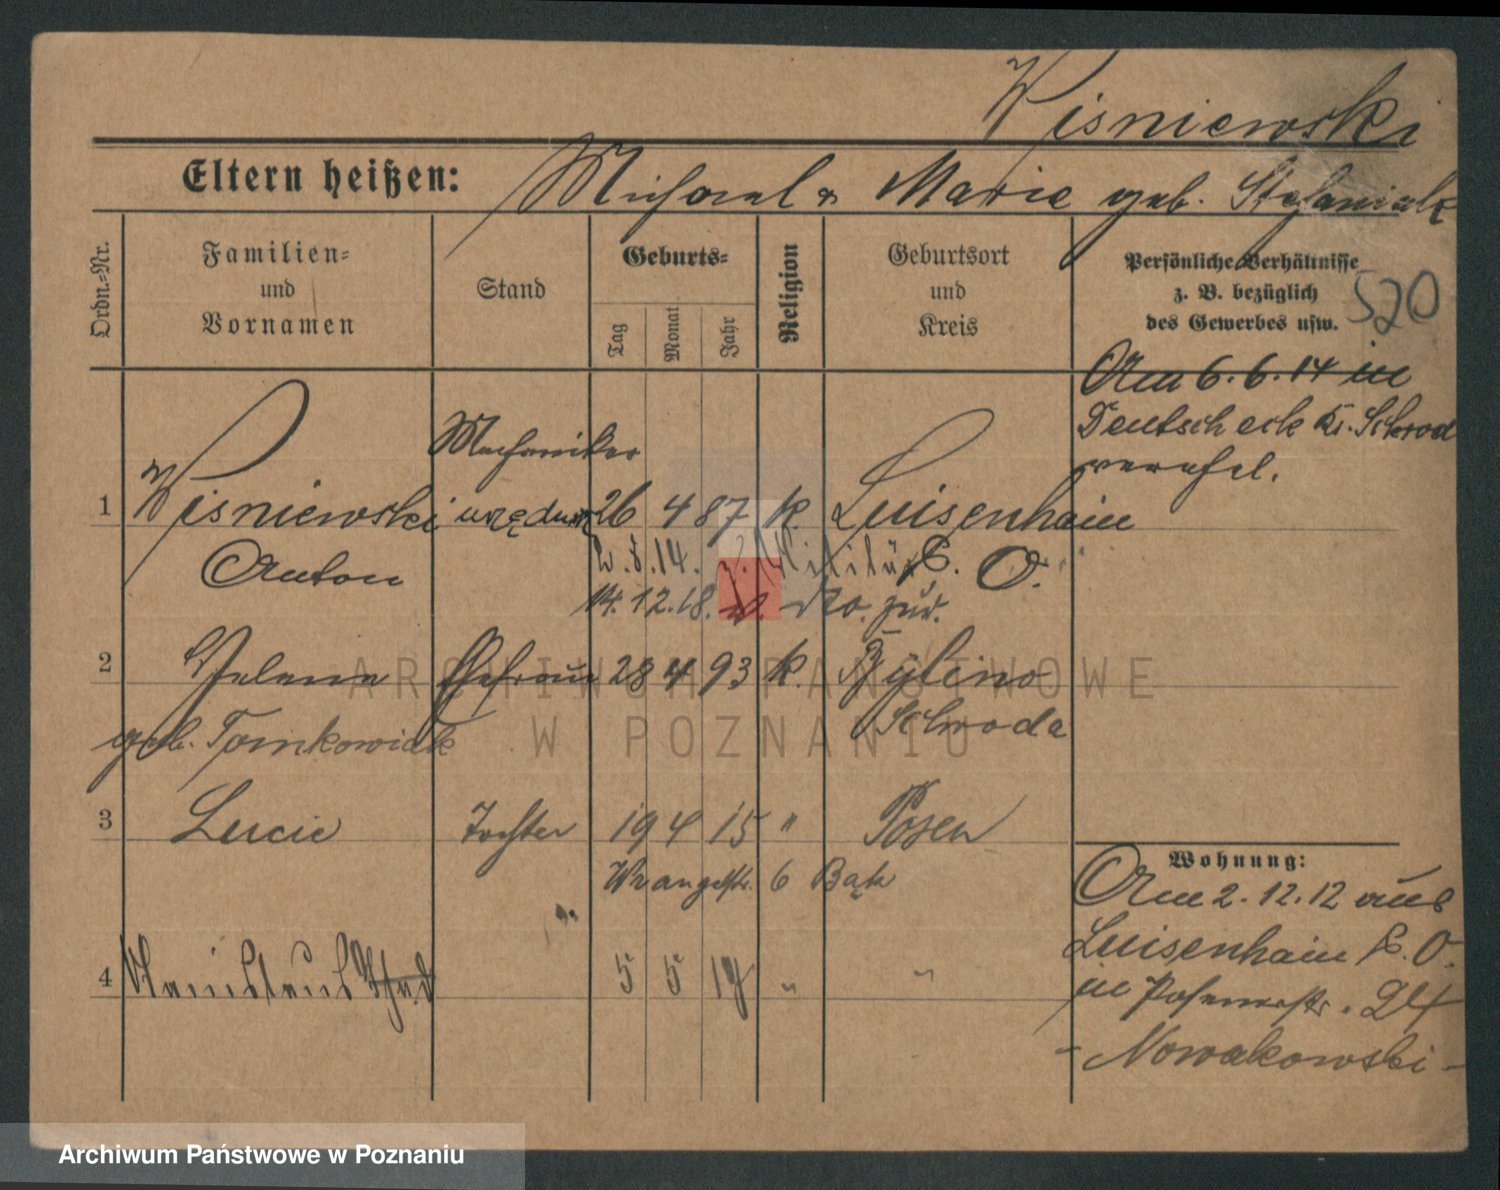 Wisniewski
Eltern heißen: Michael & Marie geb. Stefaniak
Ordn.-Nr.
Familien- und Vornamen
Stand
Geburts-
Tag
Monat
Jahr
Religion
Geburtsort und Kreis
Persönliche Verhältnisse
z. B. bezüglich
des Gewerbes usw.
520
Am 6.6.14 in
Deutscheck Kr. Schrod
verehel.
Mechaniker
1 Wisniewski 26 4 87 k. Luisenhain
Anton P. O.
2. 8. 14. z. Militär
14. 12. 18. v. do. zur.
2 Helena Ehefrau 28 4 93 k.
geb. Tomkowiak Schroda
3 Lucie Tochter 19 4 15 " Posen
Wrangelstr. 6 Bąk
4 5 5 "
Wohnung:
Am 2.12.12 aus
Luisenhain P. O.
in 24
- Nowakowski -
ARCHIWUM PAŃSTWOWE
W POZNANIU
Archiwum Państwowe w Poznaniu